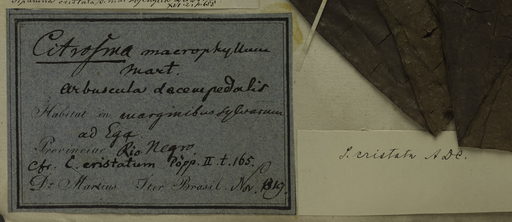 Citrosma macrophyllum
Mart.
Arbuscula decempedalis
Habitat in marginibus sylvarum
ad Ega
Provinciae Rio Negro.
Cfr. C. cristatum Pöpp. II. t. 165.
Dr. Martius Iter Brasil. Nov. 1819
S. cristata ADC.